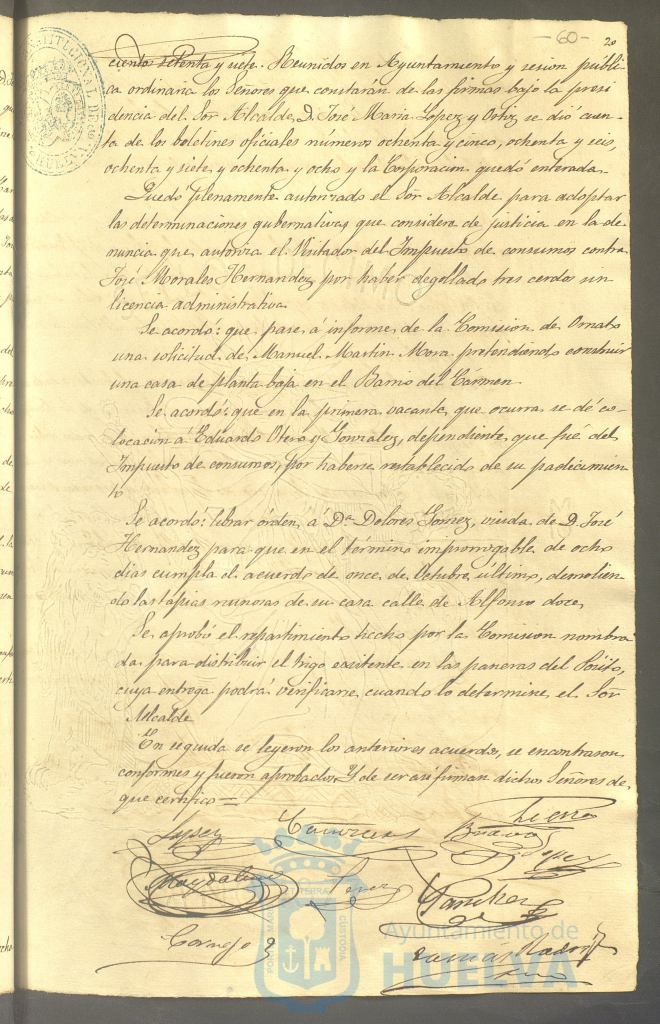 -60-
20
ciento setenta y siete. Reunidos en Ayuntamiento y sesion públi-
ca ordinaria los Señores que constarán de las firmas bajo la presi
dencia del Sor Alcalde, D. José María Lopez y Ortiz se dió cuen-
ta de los boletines oficiales números ochenta y cinco, ochenta y seis,
ochenta y siete, y ochenta y ocho y la Corporacion quedó enterada.
Quedó plenamente autorizado el Sor Alcalde para adoptar
las determinaciones gubernativas que considere de justicia en la de-
nuncia que autoriza el Visitador del Impuesto de consumos contra
José Morales Hernandez, por haber degollado tres cerdos sin
licencia administrativa.
Se acordó: que pase á informe de la Comision de Ornato
una solicitud de Manuel Martin Mora pretendiendo construir
una casa de planta baja en el Barrio del Cármen
Se acordó: que en la primera vacante que ocurra se dé co-
locacion á Eduardo Otero y Gonzalez, dependiente que fué del
Impuesto de consumos, por haberse restablecido de su padecimien
to
Se acordó: librar órden á Da Dolores Gomez, viuda de D. José
Hernandez para que en el término improrrogable de ocho
dias cumpla el acuerdo de once de Octubre último, demolien-
do las tapias ruinosas de su casa calle de Alfonso doce,
Se aprobó el repartimiento hecho por la Comision nombra
da para distribuir el trigo existente en las paneras del Pósito,
cuya entrega podrá verificarse cuando lo determine el Sor
Alcalde
En seguida se leyeron los anteriores acuerdos, se encontraron
conformes y fueron aprobados. Y de ser asi firman dichos Señores de
que certifico =
Lopez
Bravo
Lopez
Magdalena
Perez
Sanchez
Cornejo
PORTUS MARIS ET TERRAE CUSTODIA
Ayuntamiento de
HUELVA